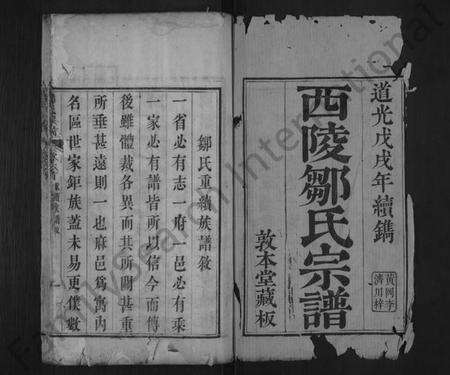 道光戊戌年續鐫
西陵鄒氏宗譜
敦本堂藏板
黃岡李
濟川梓
鄒氏重續族譜敘
一省必有志一府一邑必有乘
一家必有譜皆所以信今而傳
後雖體裁各異而其所關甚重
所垂甚遠則一也麻邑為寓內
名區世家鉅族蓋未易更僕數